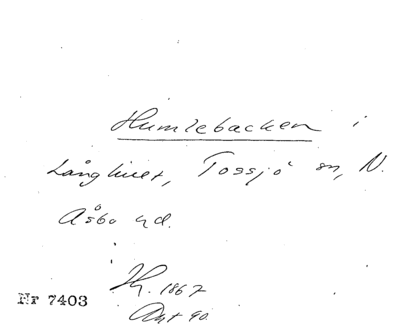 Humlebacken i
Långhult, Tossjö sn, N.
Åsbo hd.
Nr 7403
1867
Akt 90